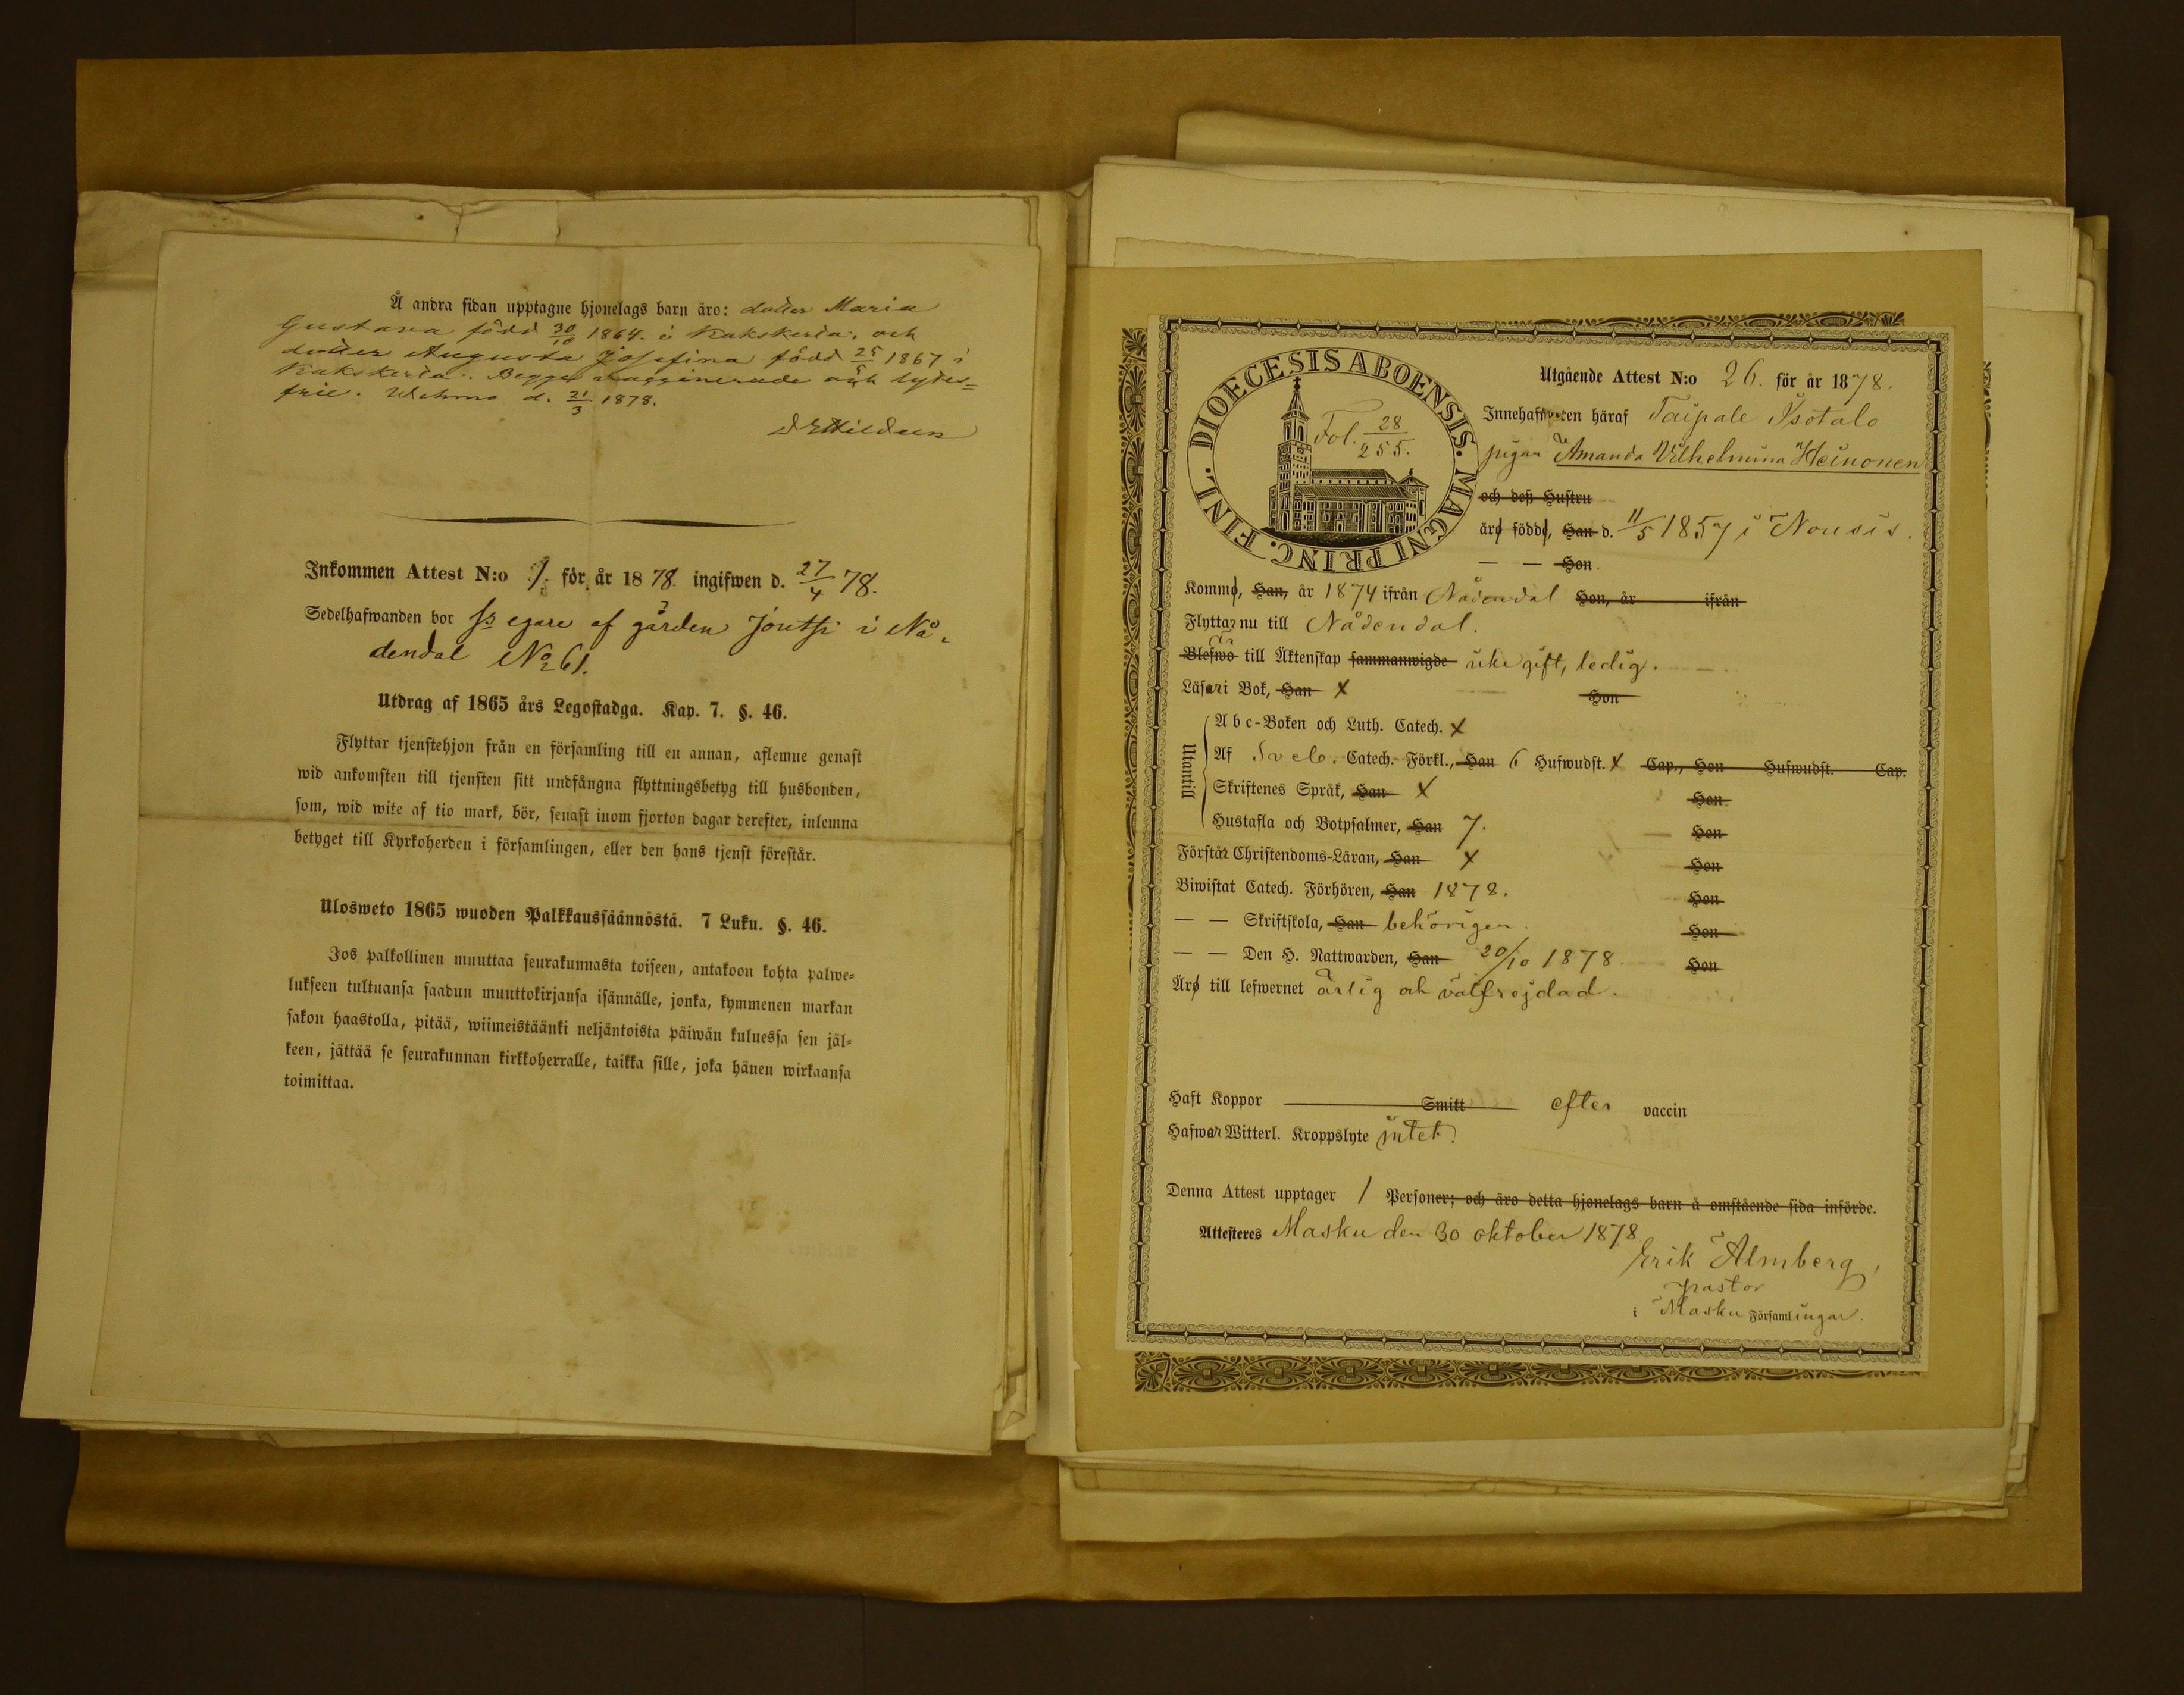 Å andra sidan upptagne hjonelags barn äro: dotter Maria
Gustava född 30/10 1864. i Kakskerta, och
dotter Augusta Josefina född 25/5 1867 i
Kakskerta. Begge vaggineråde och lytes=
frie. Wehmo d. 21/3 1878.
Inkommen Attest N:o 9. för år 1878. ingifwen d. 27/4 78.
Sedelhafwanden bor ss egare af gården Joutsi i Nå-
dendal No 61.
Utdrag af 1865 års Legostadga. Kap. 7. §. 46.
Flyttar tjenstehjon från en församling till en annan, aflemne genast
wid ankomsten till tjensten sitt undfångna flyttningsbetyg till husbonden,
som, wid wite af tio mark, bör, senast inom fjorton dagar derefter, inlemna
betyget till Kyrkoherden i församlingen, eller den hans tjenst förestår.
Ulosweto 1865 wuoden Palkkaussäännöstä. 7 Luku. §. 46.
Jos palkollinen muuttaa seurakunnasta toiseen, antakoon kohta palwe=
lukseen tultuansa saadun muuttokirjansa isännälle, jonka, kymmenen markan
sakon haastolla, pitää, wiimeistäänki neljäntoista päiwän kuluessa sen jäl=
keen, jättää se seurakunnan kirkkoherralle, taikka sille, joka hänen wirkaansa
toimittaa.
DIOECESIS ABOENSIS. MAGNI PRINC. FINL.
Fol. 28/255.
Utgående Attest N:o 26. för år 1878.
Innehafwaren häraf Taipale Isotalo
pigan Amanda Vilhelmina Heinonen
och deß Hustru
äro födde, Han d. 11/5 1857 i Nousis.
— — Hon
Kommo, Han, år 1874 ifrån Nådendal Hon, år ifrån
Flyttar nu till Nådendal.
Är
Blefwo till Äktenskap sammanwigde icke gift, ledig.
Läser i Bok, Han x Hon
Utantill
Abc-Boken och Luth. Catech. x
Af Sveb. Catech. Förkl., Han 6 Hufwudst. x Cap., Hon Hufwudst. Cap.
Skriftenes Språk, Han x Hon
Hustafla och Botpsalmer, Han 7. Hon
Förstår Christendoms-Läran, Han x Hon
Biwistat Catech. Förhören, Han 1878. Hon
— — Skriftskola, Han behörigen. Hon
— — Den H. Nattwarden, Han 20/10 1878 Hon
Äro till lefwernet ärlig och välfrejdad.
Haft Koppor Smitt efter vaccin
Hafwer Witterl. Kroppslyte intet.
Denna Attest upptager 1 Personer; och äro detta hjonelags barn å omstående sida införde.
Attesteres Masku den 30 oktober 1878
Erik Almberg,
pastor
i Masku Församlingar.